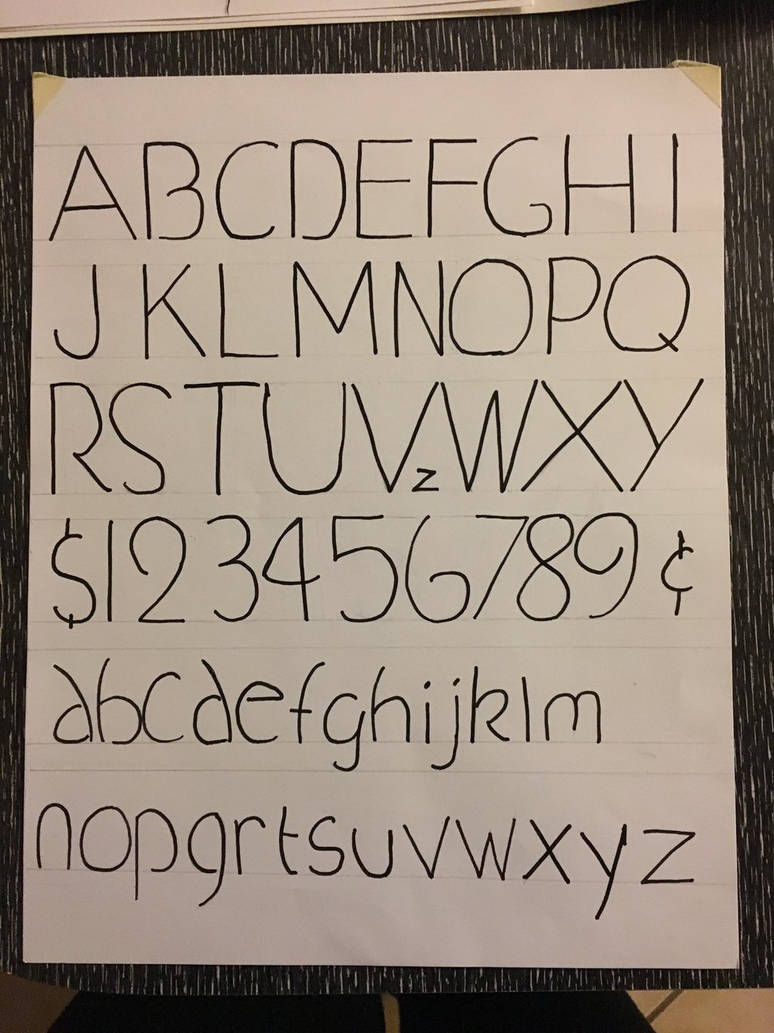 ABCDEFGHI
JKLMNOPQ
RSTUVzWXY
$123456789¢
abcdefghijklm
nopqrstuvwxyz